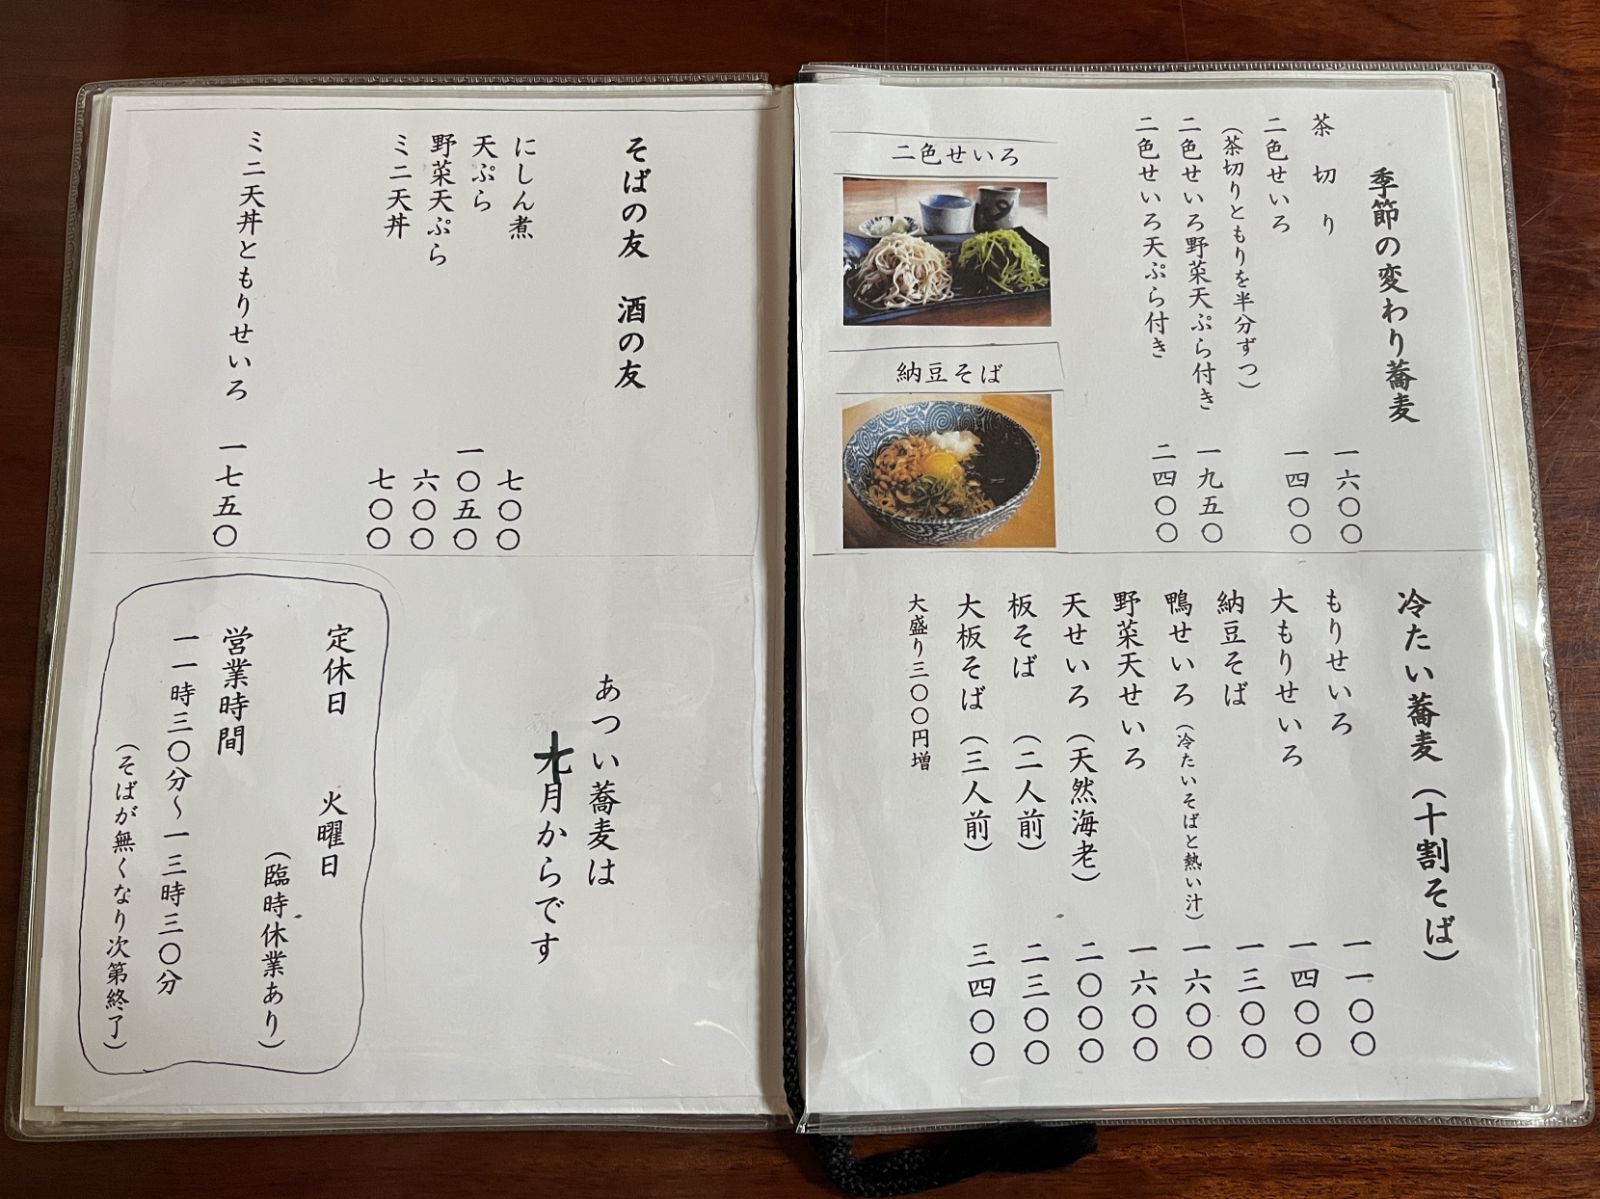 季節の変わり蕎麦
茶切り 一六〇〇
二色せいろ 一四〇〇
(茶切りともりを半分ずつ)
二色せいろ野菜天ぷら付き 一九五〇
二色せいろ天ぷら付き 二四〇〇
二色せいろ
納豆そば
冷たい蕎麦(十割そば)
もりせいろ 一一〇〇
大もりせいろ 一四〇〇
納豆そば 一三〇〇
鴨せいろ(冷たいそばと熱い汁) 一六〇〇
野菜天せいろ 一六〇〇
天せいろ(天然海老) 二〇〇〇
板そば(二人前) 二三〇〇
大板そば(三人前) 三四〇〇
大盛り三〇〇円増
そばの友 酒の友
にしん煮 七〇〇
天ぷら 一〇五〇
野菜天ぷら 六〇〇
ミニ天丼 七〇〇
ミニ天丼ともりせいろ 一七五〇
あつい蕎麦は
十月からです
定休日 火曜日
(臨時休業あり)
営業時間
一一時三〇分〜一三時三〇分
(そばが無くなり次第終了)